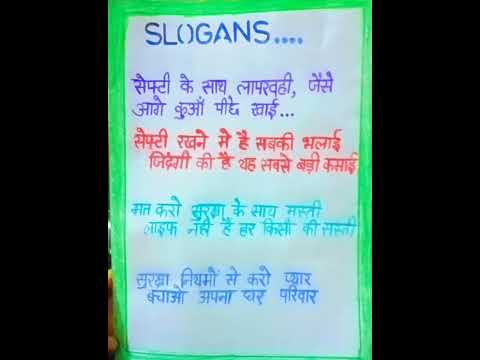 SLOGANS....
सेफ्टी के साथ लापरवाही, जैसे
आगे कुआँ पीछे खाई...
सेफ्टी रखने मे है सबकी भलाई
जिंदगी की है यह सबसे बड़ी कमाई
मत करो सुरक्षा के साथ मस्ती
लाइफ नही है हर किसी की सस्ती
सुरक्षा नियमों से करो प्यार
बचाओ अपना घर परिवार